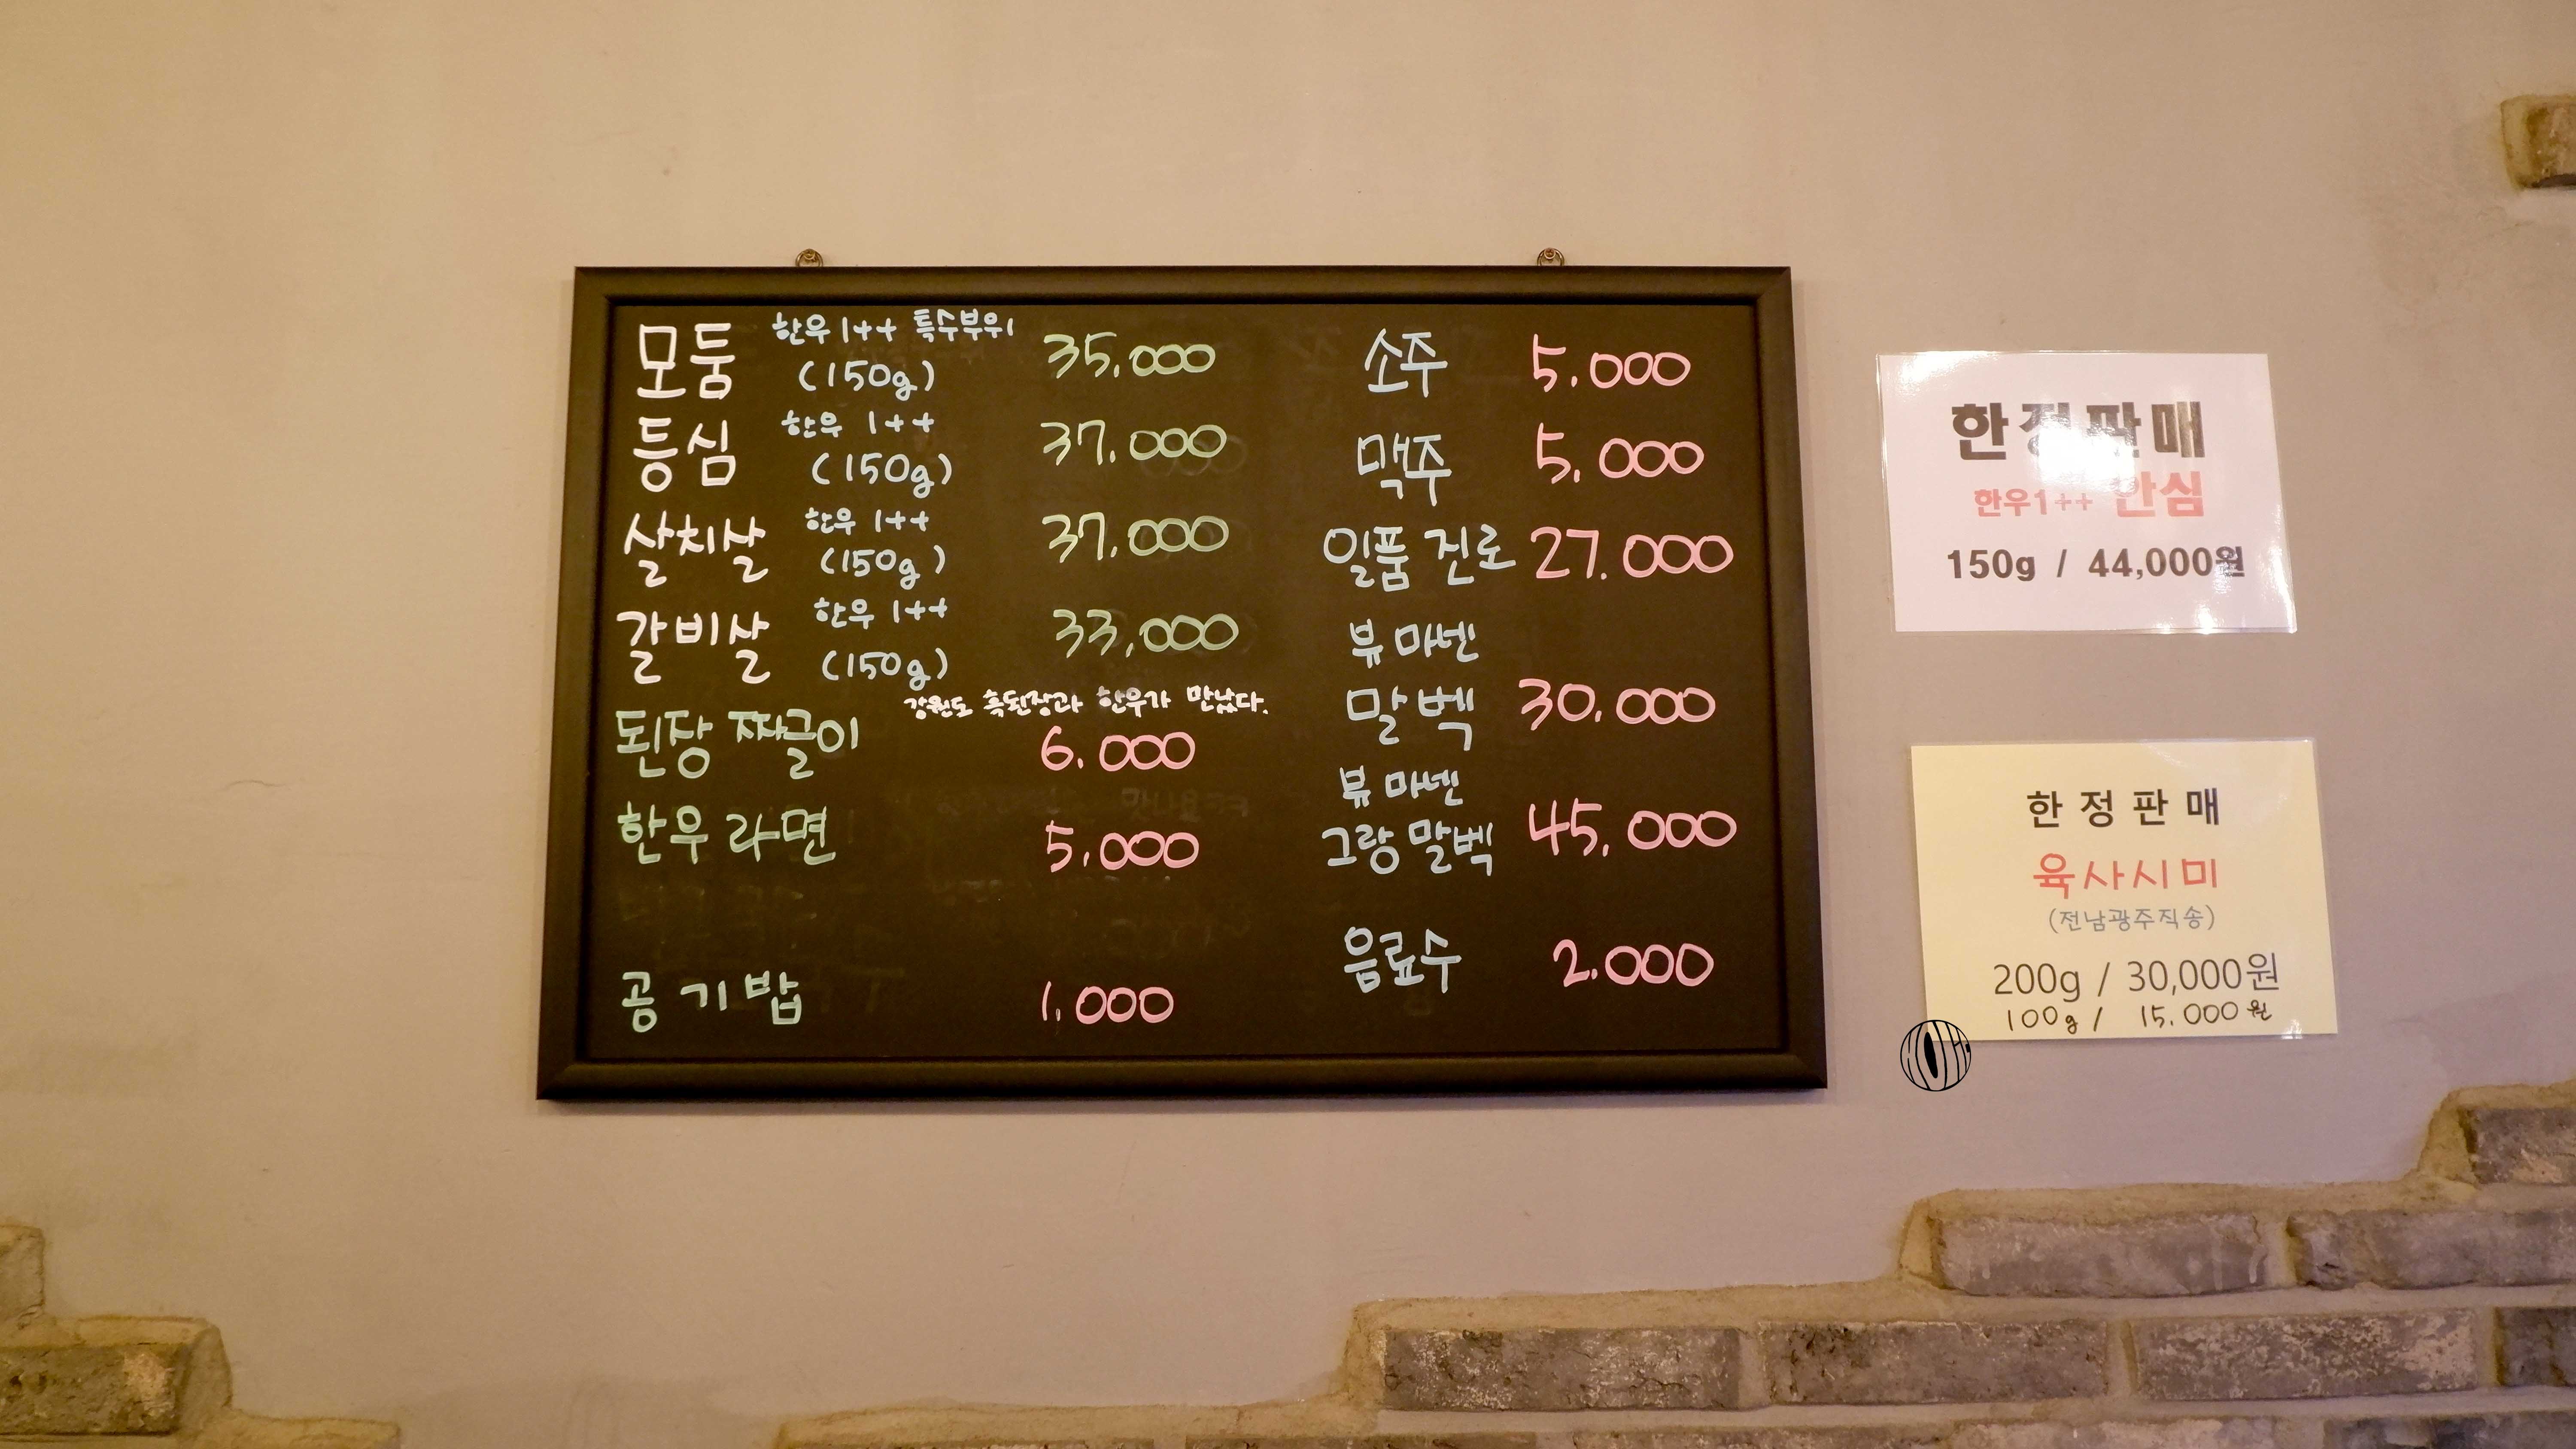 모둠 한우 1++ 특수부위 (150g) 35,000
등심 한우 1++ (150g) 37.000
살치살 한우 1++ (150g) 37.000
갈비살 한우 1++ (150g) 33,000
강원도 흑된장과 한우가 만났다.
된장 짜글이 6.000
한우 라면 5,000
공기밥 1,000
소주 5.000
맥주 5,000
일품 진로 27.000
뷰 마넨
말벡 30.000
뷰 마넨
그랑 말벡 45,000
음료수 2.000
한정판매
한우1++ 안심
150g / 44,000원
한정판매
육사시미
(전남광주직송)
200g / 30,000원
100g / 15.000원